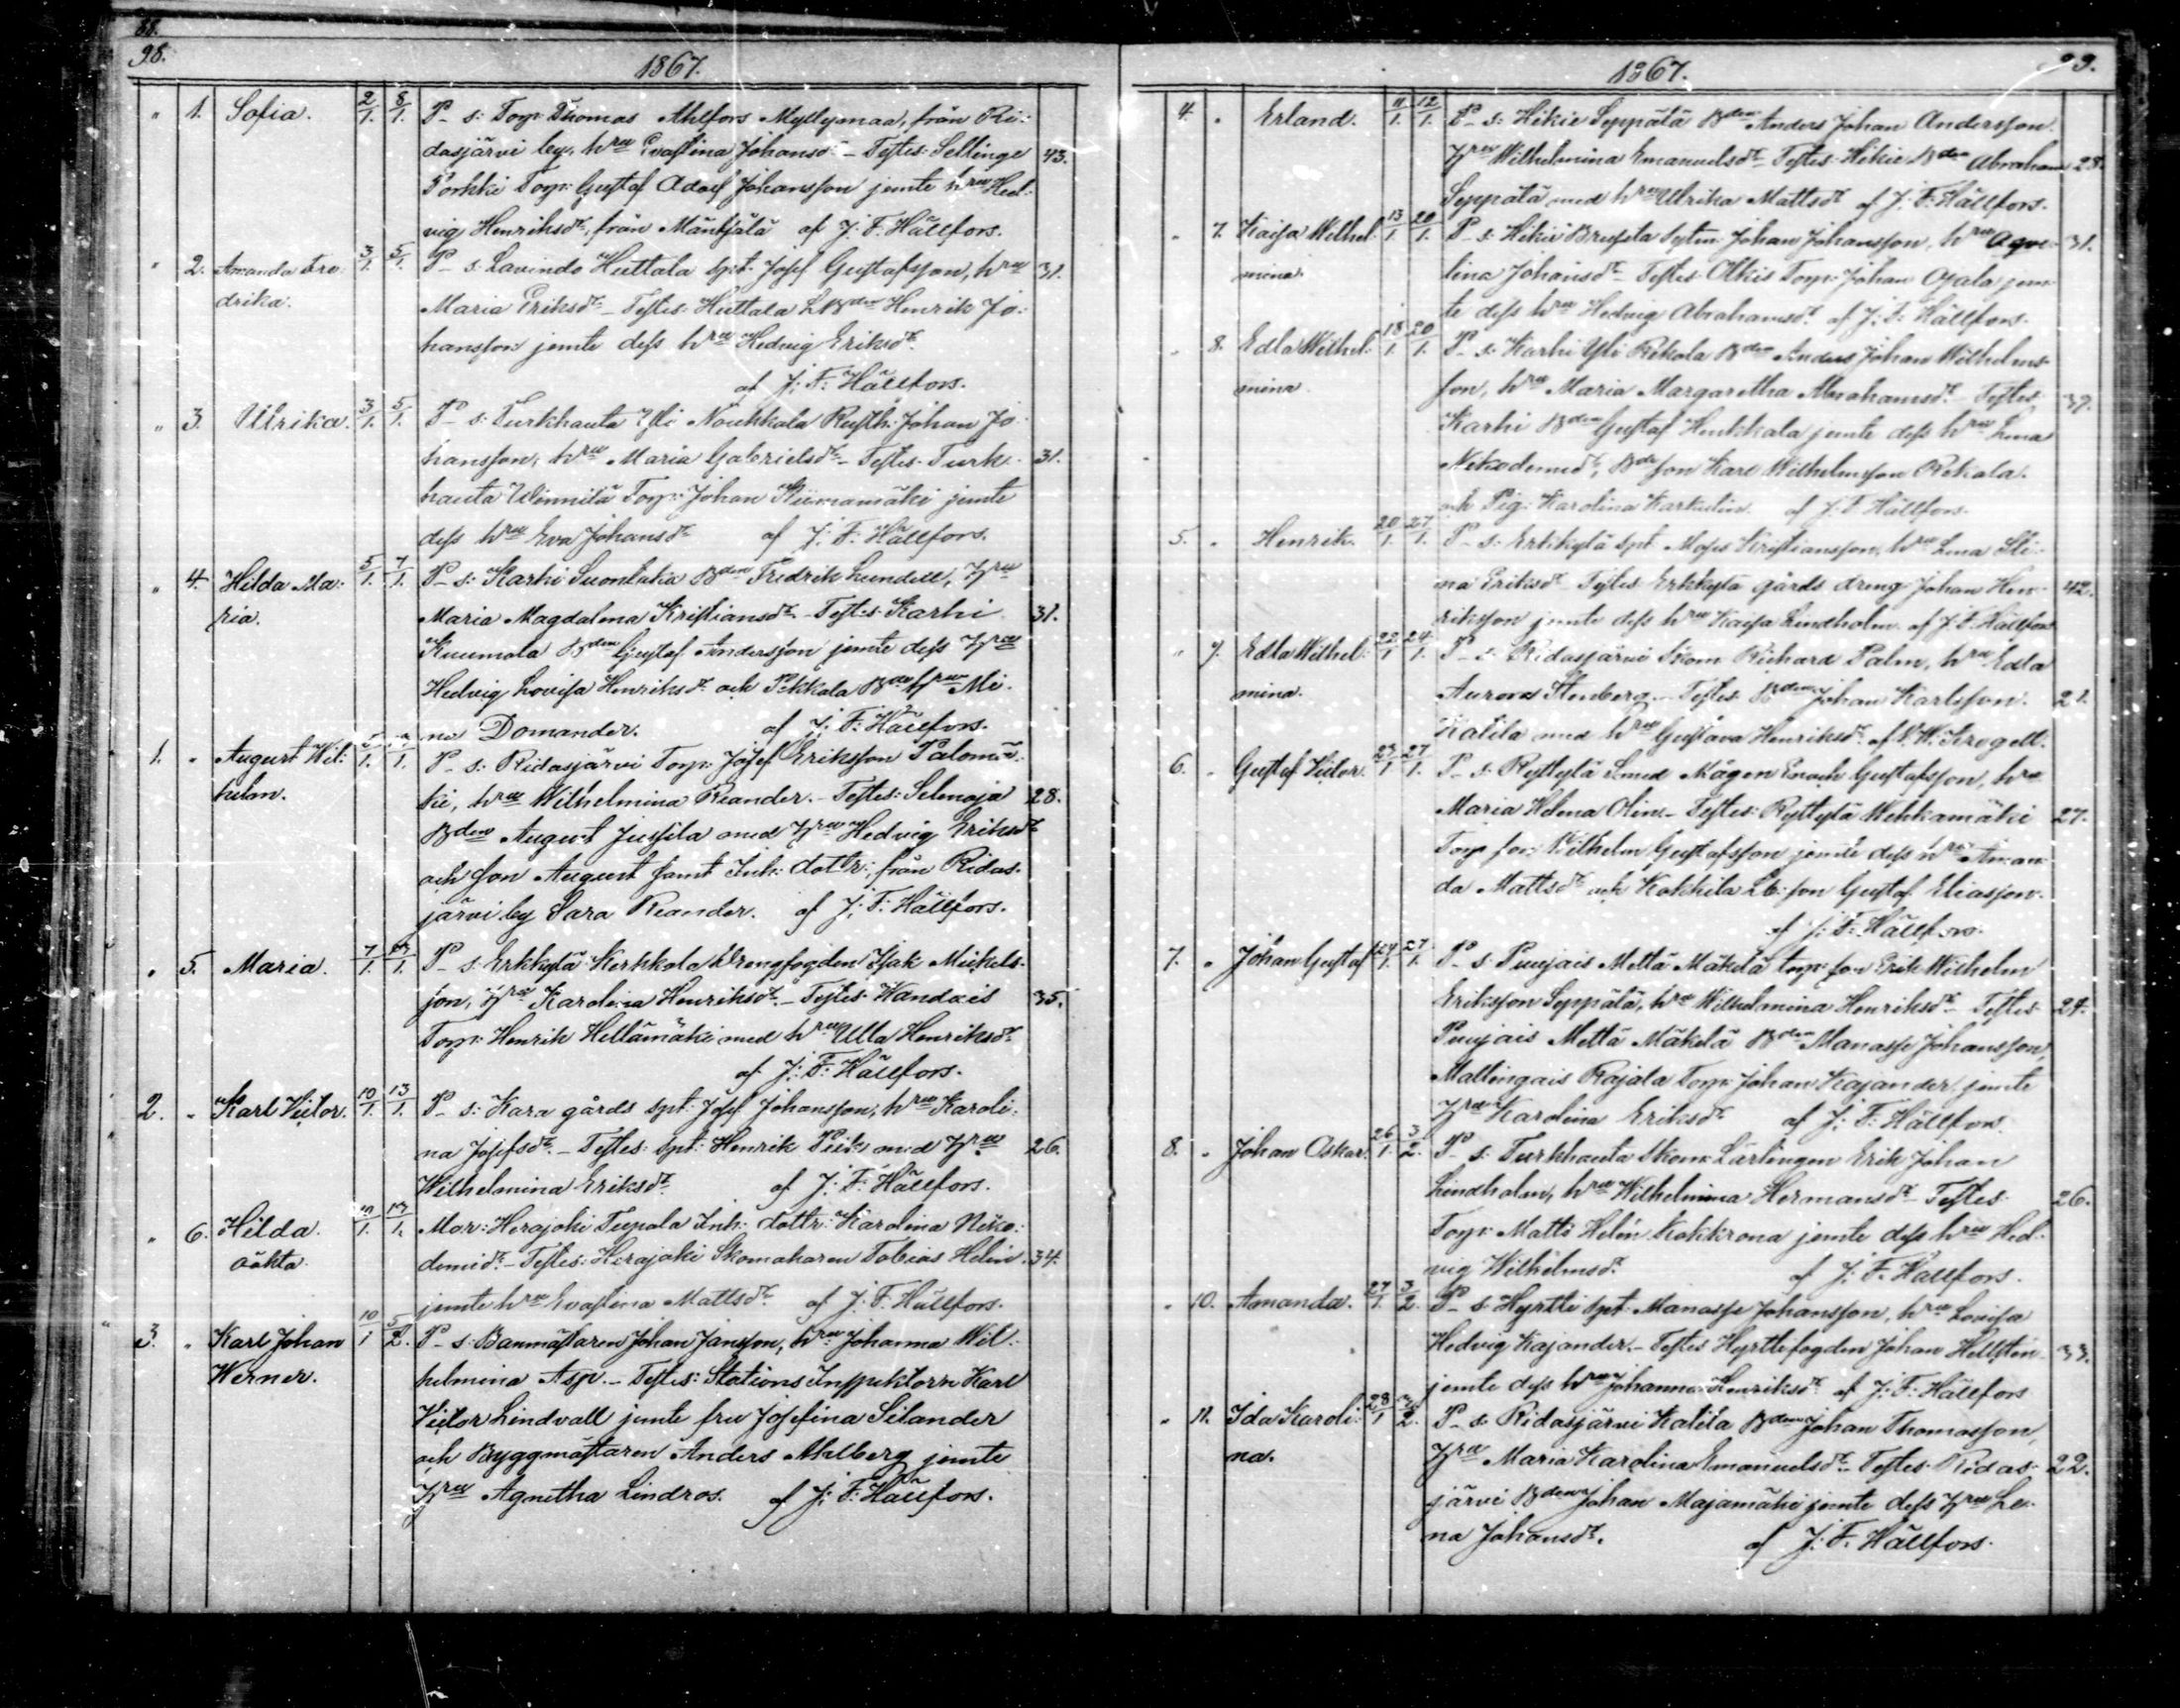 88.
98.
1867.
" 1. Sofia. 2/1. 8/1. P_ s: Torp: Thomas Ahlfors Myllymaa, från Ri:
dasjärvi by, hru Evastina Johansdr_ Testes: Sellinge 43.
Porkki Torp: Gustaf Adolf Johansson jemte hru Hed:
vig Henriksdr, från Mäntsälä af J: F: Hällfors.
" 2. Amanda Fre: 3/1. 5/1. P_ s. Lavindo Huttala spt. Josef Gustafsson, hru 31.
drika. Maria Eriksdr_ Testes: Huttala LBden Henrik Jo:
hansson jemte dess hru Hedvig Eriksdr.
af J: F: Hällfors.
" 3. Ulrika. 3/1. 5/1. P_ s: Turkhauta Yli Noukkala Rusth: Johan Jo:
hansson, hru Maria Gabrielsdr_ Testes. Turk: 31.
hauta Torp: Johan jemte
dess hru Eva Johansdr af J: F: Hällfors.
" 4. Hilda Ma: 5/1. 7/1. P_ s: Karhi Bden Fredrik Lundell, hru
ria. Maria Magdalena Kristiansdr_ Testes: Karhi 31.
Bden Gustaf Andersson jemte dess hru
Hedvig Lovisa Henriksdr och Pekkala Bde hru Mi:
na Domander. af J: F: Hällfors.
1. " August Wil: 1. 1. P_ s: Ridasjärvi Torp: Josef Eriksson Palomä:
helm. ki, hru Wilhelmina Reander._ Testes: Selmaja 28.
Bden August Jussila med hru Hedvig Eriksdr
och son August samt Inh: dottr: från Ridas:
järvi by Sara Reander. af J: F: Hällfors.
" 5. Maria. 7/1. 1. P_ s. Erkkylä Kerkkola Drengfogden Isak Mickels:
son, hru Karolina Henriksdr_ Testes: Wandais 35.
Torp: Henrik Hellämäki med hru Ulla Henriksdr
af J: F: Hällfors.
2. " Karl Victor. 10/1. 13/1. P_ s: Kara gårds spt: Josef Johansson, hru Karoli:
na Josefsdr._ Testes: spt: Henrik med hru 26.
Wilhelmina Eriksdr. af J: F: Hällfors.
" 6. Hilda. 1. 1. Mor: Herajoki Teepala Inh: dottr: Karolina Niko:
oäkta demidr._ Testes: Herajoki Skomakaren Tobias Helin 34.
jemte hru Evastina Mattsdr. af J: F: Hällfors.
3. " Karl Johan 10/1 5/2. P_ s: Banmästaren Johan Jansson, hru Johanna Wil:
Werner. helmina Asp._ Testes: Stations Inspektorn Karl
Victor Lindvall jemte fru Josefina Selander
och Byggmästaren Anders Ahlberg jemte
hru Agnetha Lindros. af J: F: Hällfors.
1867. 99.
4. " Erland. 11/1. 12/1. P_ s: Hikie Seppälä Bden Anders Johan Andersson
hru Wilhelmina Emanuelsdr_ Testes: Hikie Bden Abraham 28.
Seppälä med hru Ulrika Mattsdr af J: F: Hällfors.
" 7. Kajsa Wilhel: 13/1. 20/1. P_ s: Hikie Johan Johansson, hru 31.
mina. lina Johansdr_ Testes: Torp: Johan Ojala jem:
te dess hru Hedvig Abrahamsdr af J: F: Hällfors.
" 8. Edla Wilhel: 18/1. 20/1. P_ s: Karhi Yli Rekola Bden Anders Johan Wilhelms:
mina. son, hru Maria Margaretha Abrahamsdr._ Testes:
Karhi Bden Gustaf jemte dess hru Lena
Nikodemidr, Bde son Karl Wilhelmsson Rekola.
och Pig: Karolina af J: F: Hällfors.
5. " Henrik. 20/1. 27/1. P_ s: Erkkylä spt. Moses Kristiansson, hru Lena Sti:
na Eriksdr_ Testes Erkkylä gårds dreng Johan Hen: 42.
riksson jemte dess hru Kajsa Lindholm. af J: F: Hällfors
" 9. Edla Wilhel: 22/1. 24/1. P_ s: Ridasjärvi Skom. Richard Palm, hru Edla
mina. Aurora Stenberg._ Testes: Bden Johan Karlsson. 21.
Katila med hru Gustava Henriksdr. af Krogell.
6. " Gustaf Victor. 23/1. 27/1. P_ s: Ryttylä Smed Mågen Enoch Gustafsson, hru
Maria Helena Olin._ Testes: Ryttylä 27.
Torp son: Wilhelm Gustafsson jemte dess hru Aman:
da Mattsdr och Kokkila Lb: son Gustaf Eliasson.
af J: F: Hällfors.
7. " Johan Gustaf 24/1. 27/1. P_ s: Puujais Mettä Mäkelä torp: son Erik Wilhelm
Eriksson Seppälä, hru Wilhelmina Henriksdr_ Testes 24.
Puujais Mettä Mäkelä Bden Manasse Johansson,
Mallingais Rajala Torp: Johan Kajander jemte
hru Karolina Eriksdr af J: F: Hällfors.
8. " Johan Oskar. 26/1. 3/2. P_ s: Turkhauta Skom: Lärlingen Erik Johan
Lindholm, hru Wilhelmina Hermansdr_ Testes 26.
Torp: Matts Helén jemte dess hru Hed:
vig Wilhelmsdr. af J: F: Hällfors.
" 10. Amanda. 27/1. 3/2. P_ s. Hyrtti spt: Manasse Johansson, hru Lovisa
Hedvig Kajander._ Testes Hyrttifogden Johan Hellstén 33.
jemte dess hru Johanna Henriksdr. af J: F: Hällfors
" 11. Ida Karoli: 28/1 2. P_ s: Ridasjärvi Katila Bden Johan Thomasson,
na. hru Maria Karolina Emanuelsdr. Testes Ridas: 22.
järvi Bden Johan Majamäki jemte dess hru Le:
na Johansdr. af J: F: Hällfors.